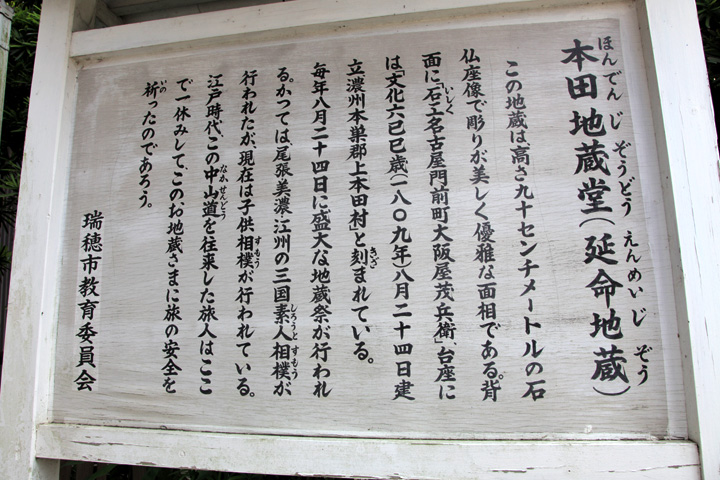 本田地蔵堂(延命地蔵)
ほんでんじぞうどう えんめいじぞう
この地蔵は、高さ九十センチメートルの石
仏座像で彫りが美しく優雅な面相である。背
面に「石工名古屋門前町大阪屋茂兵衛」、台座に
いしく
は、「文化六己巳歳(一八〇九年)八月二十四日建
立濃州本巣郡上本田村」と刻まれている。
きざ
毎年八月二十四日に盛大な地蔵祭が行われ
る。かつては、尾張美濃江州の三国素人相撲が
しろうとすもう
行われたが、現在は子供相撲が行われている。
すもう
江戸時代、この中山道を往来した旅人はここ
なかせんどう
で一休みして、このお地蔵さまに旅の安全を
祈ったのであろう。
いの
瑞穂市教育委員会